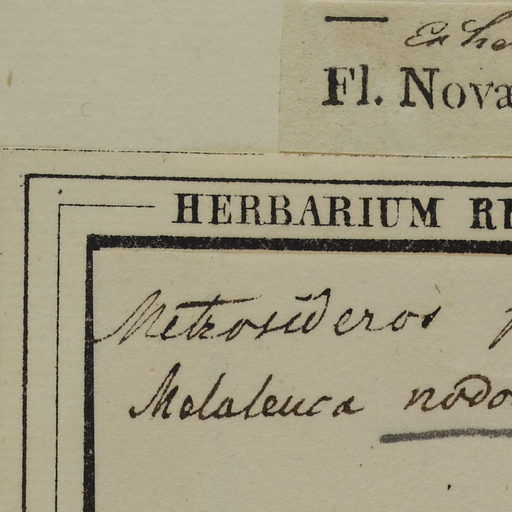 Ex he
Fl. Nova
HERBARIUM RE
Metrosideros
Melaleuca nodo